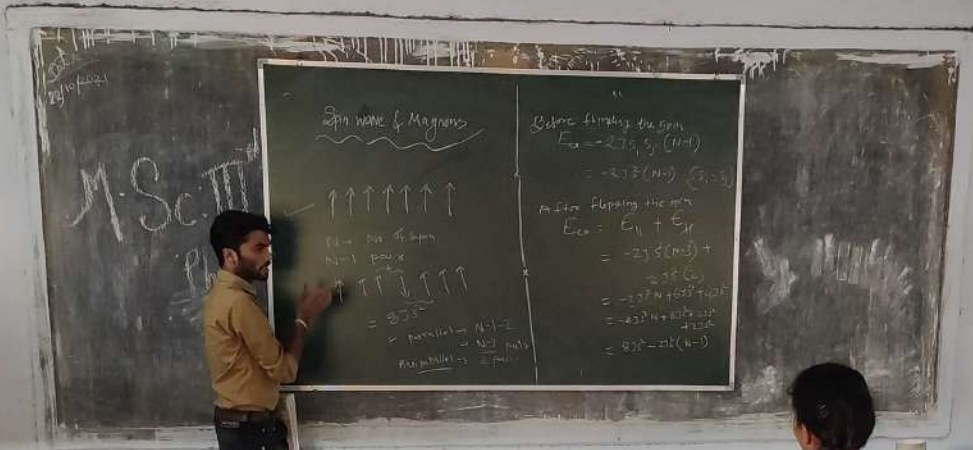 22/10/2021
M.Sc. III
Spin wave & Magnons
N → No of spin
N-1 pairs
= 8JS²
parallel → N-1-2
→ N-3 pairs
Antiparallel → 2 pairs
Before flipping the spin
E_ex = -2J S_i S_j (N-1)
= -2JS² (N-1)
After flipping the spin
E_ex =
= -2JS²(N-3) +
2JS²(2)
= -2JS²N + 6JS² + 4JS²
= -2JS²N + 8JS² + 2JS²
= 8JS² - 2JS²(N-1)